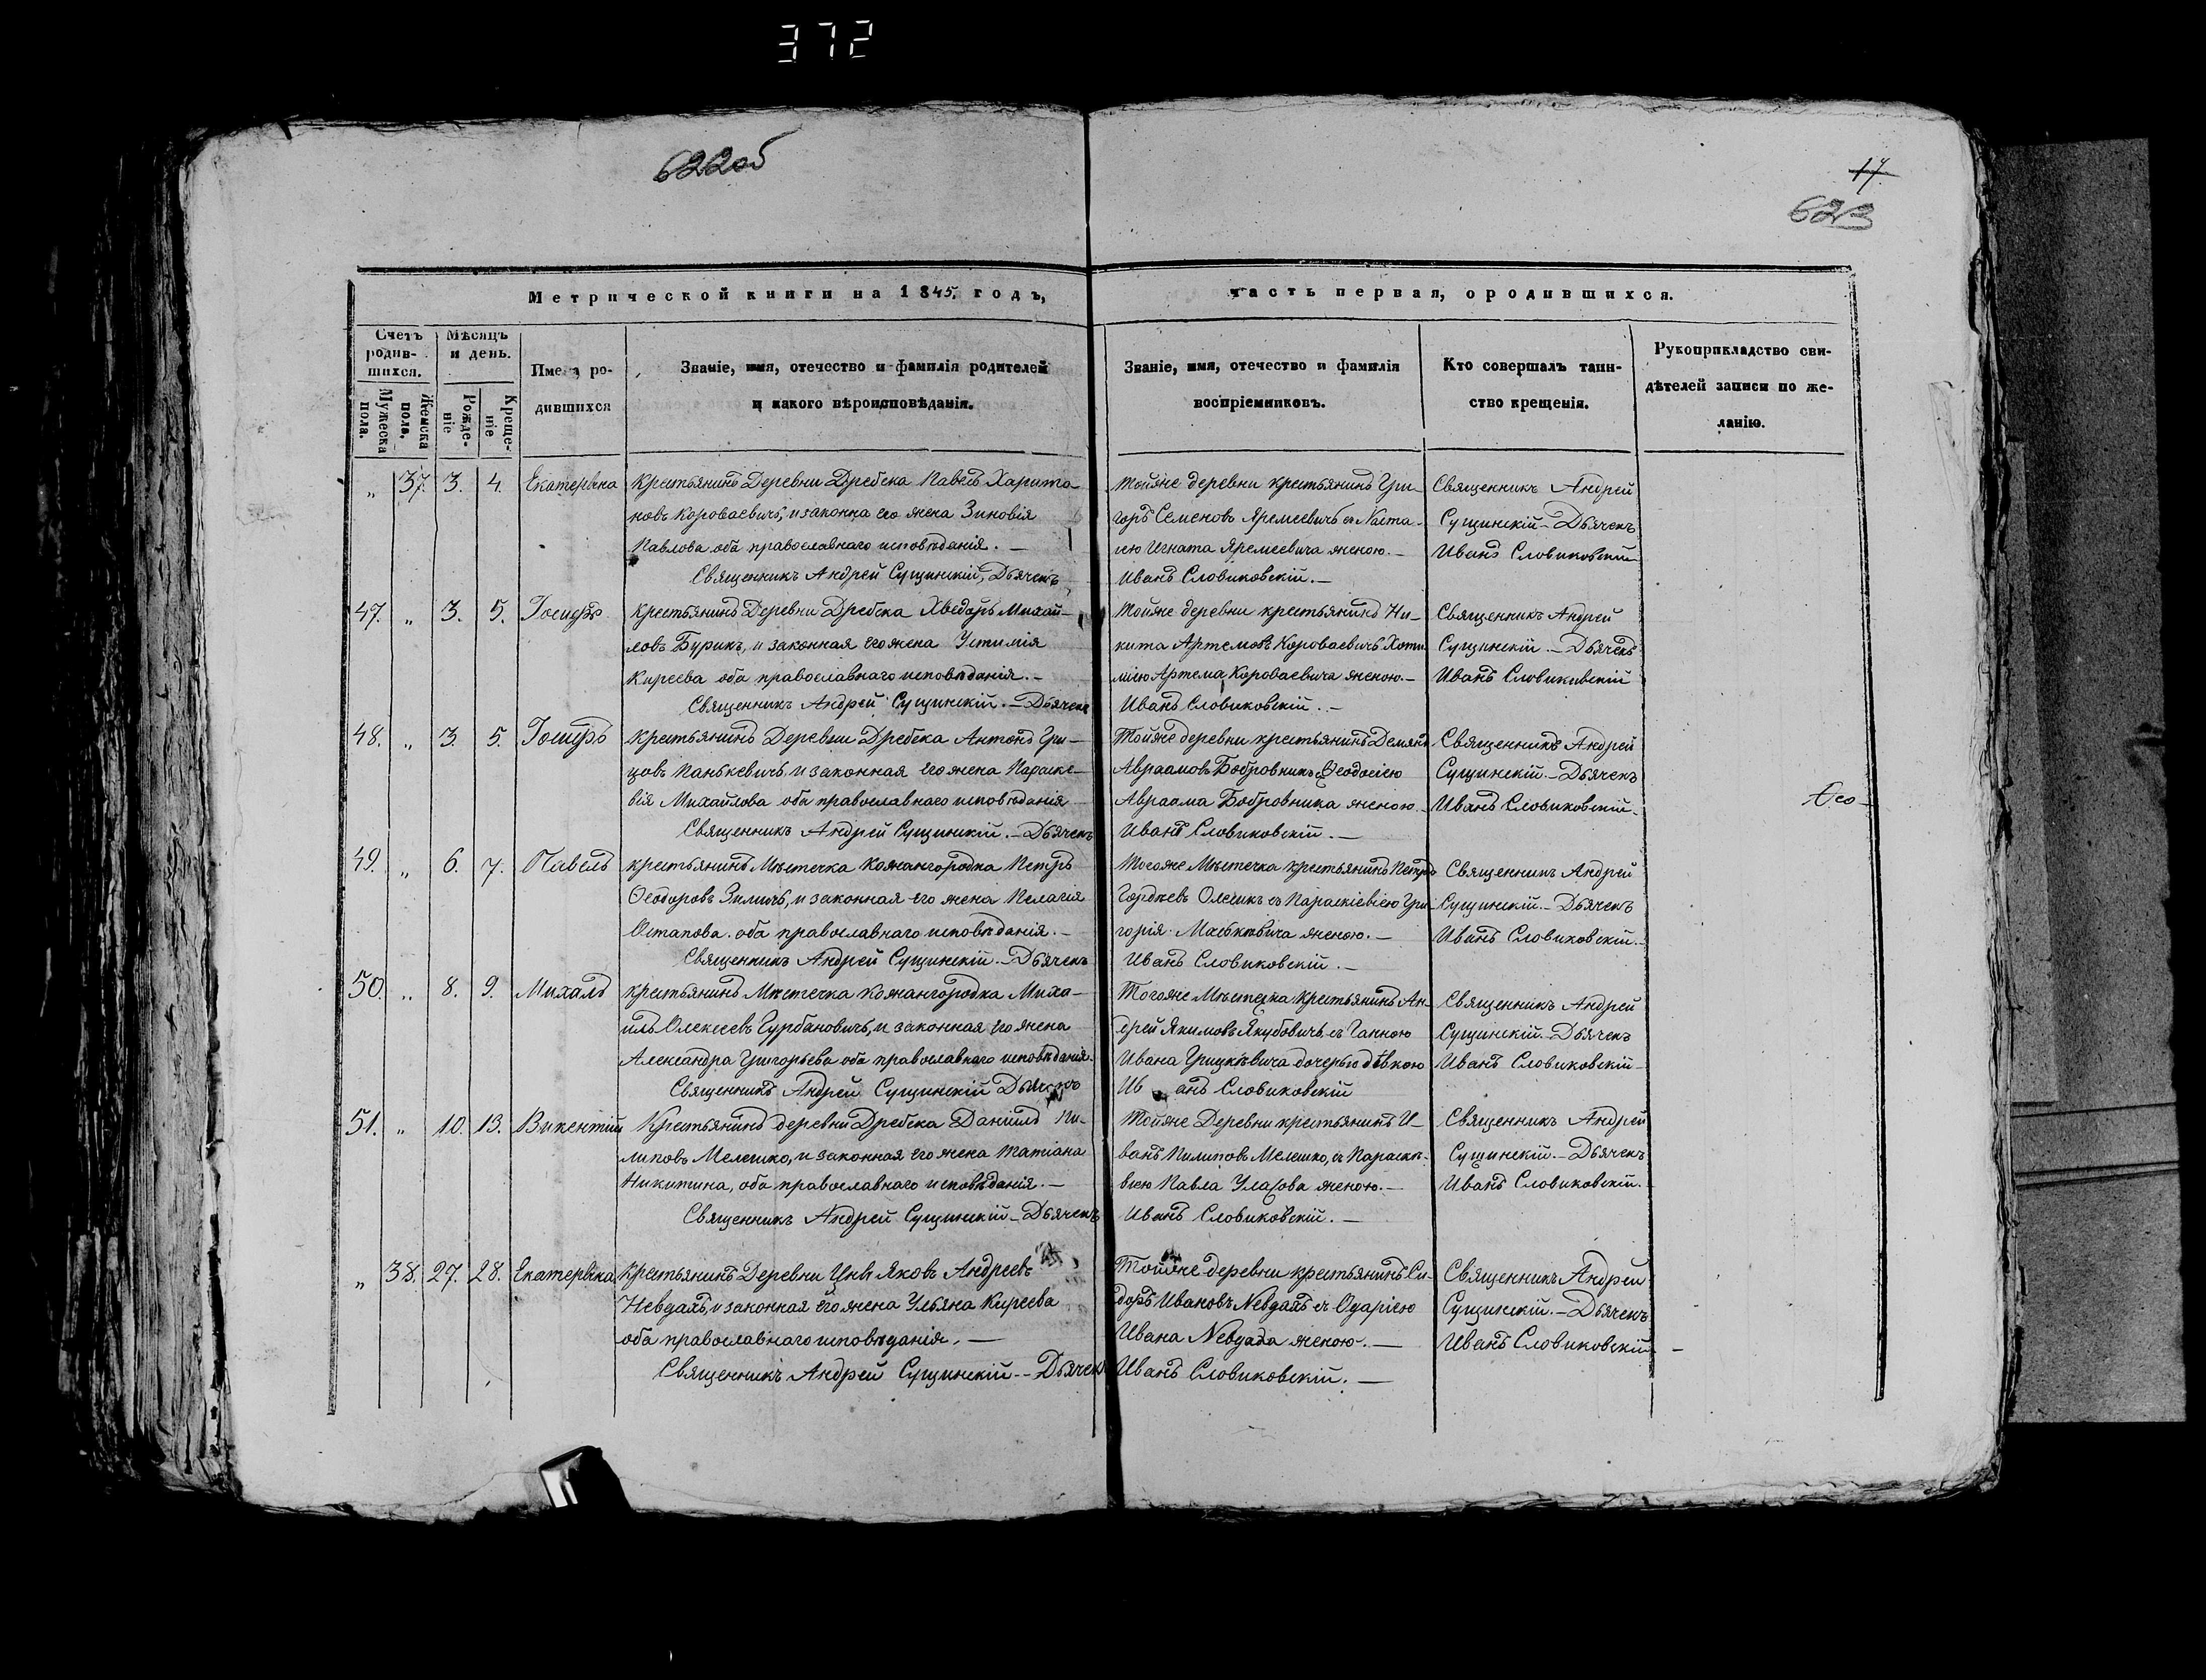 372
622об
17
623
Метрической книги на 1845. годъ,
часть первая, о родившихся.
Счетъ родив-шихся.
Мужеска пола.
Женска пола.
Мѣсяцъ и день.
Рожде-ніе
Креще-ніе
Имена ро-
дившихся
Званіе, имя, отечество и фамилія родителей
и какого вѣроисповѣданія.
Званіе, имя, отечество и фамилія
воспріемниковъ.
Кто совершалъ таин-
ство крещенія.
Рукоприкладство сви-
дѣтелей записи по же-
ланію.
„ 37. 3. 4. Екатерина
Крестьянинъ Деревни Дребска Павелъ Харито-
новъ Короваевичъ, и законна его жена Зиновія
Павлова оба православнаго исповѣданія. —
Священникъ Андрей Сущинскій, Дьячекъ
Тойже деревни крестьянинъ Гри-
горъ Семеновъ Яремеевичъ съ Наста-
сію Игната Яремеевича женою. —
Иванъ Словиковскій. —
Священникъ Андрей
Сущинскій — Дьячекъ
Иванъ Словиковскій
47. „ 3. 5. Іосифъ
Крестьянинъ Деревни Дребска Хведоръ Михай-
ловъ Бурикъ, и законная его жена Устимія
Киреева оба православнаго исповѣданія. —
Священникъ Андрей Сущинскій. — Дьячекъ
Тойже деревни крестьянинъ Ни-
кита Артемовъ Короваевичъ Хоти
мію Артема Короваевича женою. —
Иванъ Словиковскій. —
Священникъ Андрей
Сущинскій — Дьячекъ
Иванъ Словиковскій
48. „ 3. 5. Іосифъ
Крестьянинъ Деревни Дребска Антонъ Гри-
цовъ Панькевичъ, и законная его жена Параске-
вія Михайлова оба православнаго исповѣданія
Священникъ Андрей Сущинскій. — Дьячекъ
Тойже деревни крестьянинъ Демянъ
Авраамовъ Бобровникъ съ Ѳеодосіею
Авраама Бобровника женою
Иванъ Словиковскій. —
Священникъ Андрей
Сущинскій — Дьячекъ
Иванъ Словиковскій —
Ѳео-
49. „ 6. 7. Павелъ
крестьянинъ Мѣстечка Кожангородка Петръ
Ѳеодоровъ Зиличъ, и законная его жена Пелагія
Остапова. оба православнаго исповѣданія. —
Священникъ Андрей Сущинскій — Дьячекъ
Тогоже Мѣстечка крестьянинъ Петръ
Гордѣевъ Олешикъ съ Параскіевіею Гри-
горія женою. —
Иванъ Словиковскій. —
Священникъ Андрей
Сущинскій — Дьячекъ
Иванъ Словиковскій. —
50. „ 8. 9. Михалъ
крестьянинъ Мѣстечка Кожангородка Миха-
илъ Олексеевъ Гурбановичъ, и законная его жена
Александра Григорьева оба православнаго исповѣданія.
Священникъ Андрей Сущинскій Дьячекъ
Тогоже Мѣстечка крестьянинъ Ан-
дрей Якимовъ Якубовичъ, съ Ганною
Ивана Грицкѣвича дочерью дѣвкою
Иванъ Словиковскій
Священникъ Андрей
Сущинскій — Дьячекъ
Иванъ Словиковскій —
51. „ 10. 13. Викентій
Крестьянинъ деревни Дребска Даніилъ Пи-
липовъ Мелешко, и законная его жена Татіана
Никитина, оба православнаго исповѣданія. —
Священникъ Андрей Сущинскій — Дьячекъ
Тойже Деревни крестьянинъ И-
ванъ Пилиповъ Мелешко, съ Параске-
віею Павла Уласова женою. —
Иванъ Словиковскій. —
Священникъ Андрей
Сущинскій — Дьячекъ
Иванъ Словиковскій.
„ 38. 27. 28. Екатерина
крестьянинъ Деревни Цнѣ Яковъ Андреевъ
Невдахъ, и законная его жена Ульяна Киреева
оба православнаго исповѣданія. —
Священникъ Андрей Сущинскій — Дьячекъ
Тойже деревни крестьянинъ Си-
доръ Ивановъ Невдахъ съ Одаріею
Ивана женою. —
Иванъ Словиковскій. —
Священникъ Андрей
Сущинскій. — Дьячекъ
Иванъ Словиковскій —